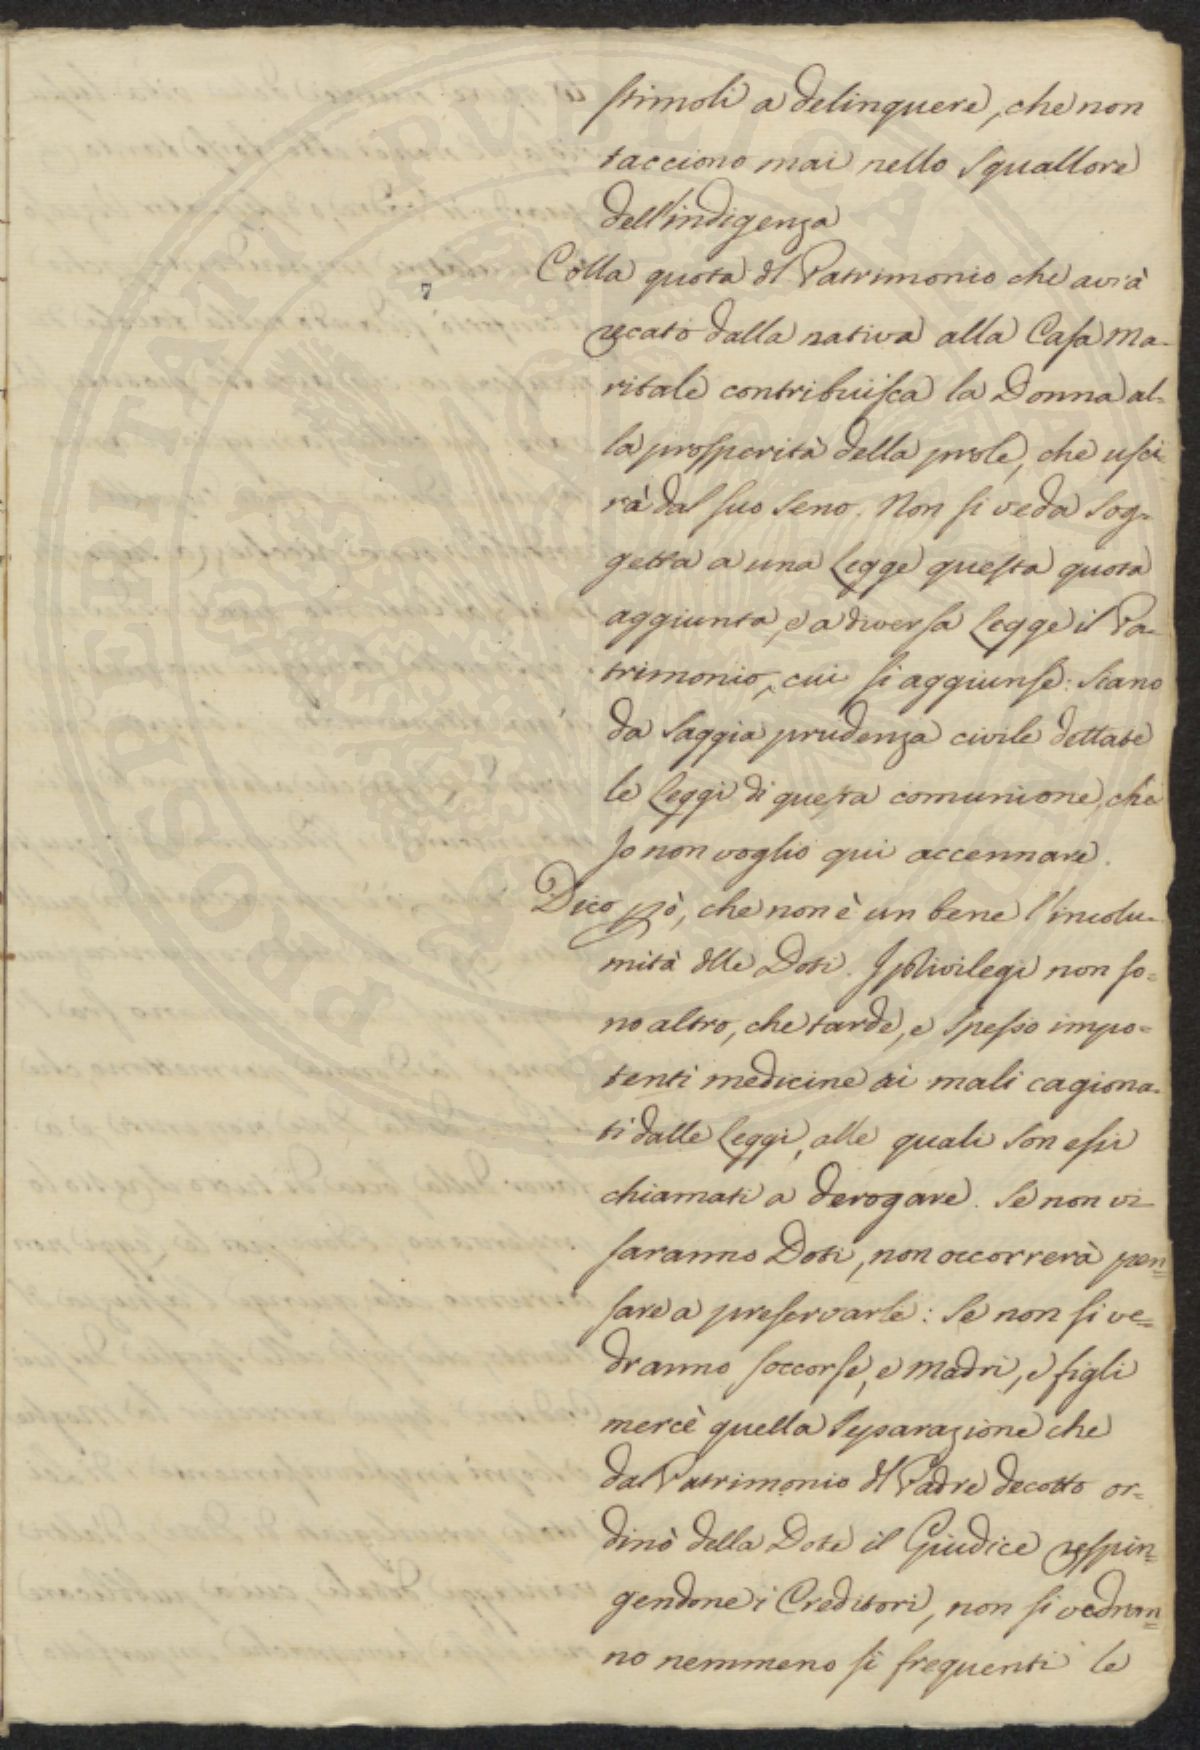 stimoli a delinquere, che non
tacciono mai nello squallore
dell'indigenza
7
Colla quota dl Patrimonio che avrà
recato dalla nativa alla Casa Ma-
ritale contribuisca la Donna al-
la prosperità della prole, che usci-
rà dal suo seno. Non si veda sog-
getta a una Legge questa quota
aggiunta, e a diversa Legge il Pa-
trimonio, cui si aggiunse: Siano
da saggia prudenza civile dettate
le Leggi di questa comunione, che
Io non voglio qui accennare.
Dico pò, che non è un bene l'incolu-
mità dlle Doti. I plivilegi non so-
no altro, che tarde, e spesso impo-
tenti medicine ai mali cagiona-
ti dalle Leggi, alle quali son essi
chiamati a derogare. Se non vi
saranno Doti, non occorrerà pen-
sare a preservarle: Se non si ve-
dranno soccorse, e Madri, e figli
mercè quella separazione che
dal Patrimonio dl Padre decotto or-
dinò della Dote il Giudice respin-
gendone i Creditori, non si vedran-
no nemmeno sì frequenti le
PROSPERITATI PVBLICAE